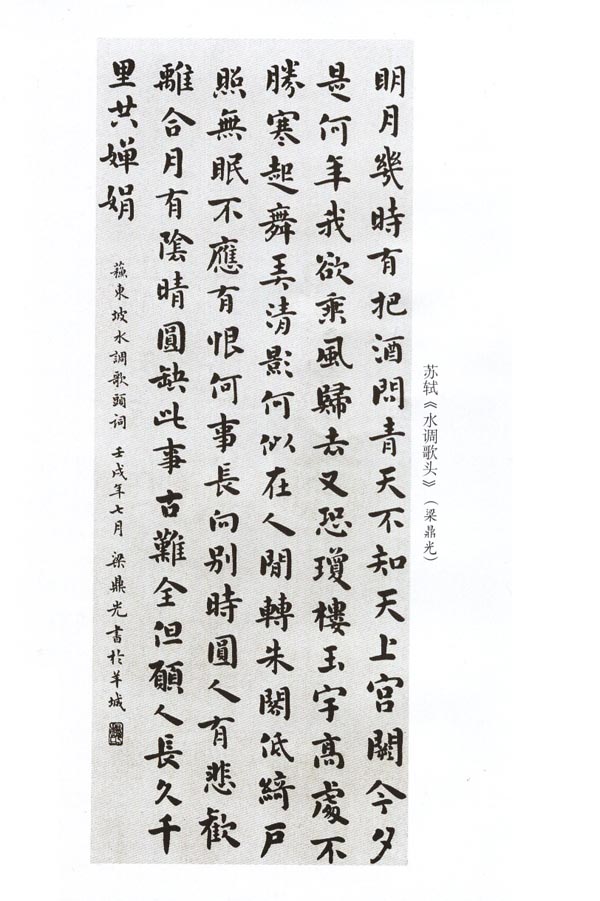 明月幾時有把酒問青天不知天上宮闕今夕
是何年我欲乘風歸去又恐瓊樓玉宇高處不
勝寒起舞弄清影何似在人間轉朱閣低綺戶
照無眠不應有恨何事長向別時圓人有悲歡
離合月有陰晴圓缺此事古難全但願人長久千
里共嬋娟
蘇東坡水調歌頭詞 壬戌年七月 梁鼎光書於羊城
苏轼《水调歌头》（梁鼎光）